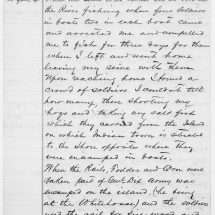 the River fishing when four soldiers
in boats two in each boat came
and arrested me and compelled
me to fish for three days for them
when I left and went home
leaving my seine with them.
Upon reaching home I found a
crowd of soldiers I couldn't tell
how many, there shooting my
hogs and taking my calf food
which they carried from the Island
on which Indian town is situated
to the shore opposite where they
were encamped in boats.
When the Rails, Fodder and Corn were
taken part of Genl. Army was
encamped on the island, (he being
at the Whitehouse) and the soldiers
used the rails for fire wood and